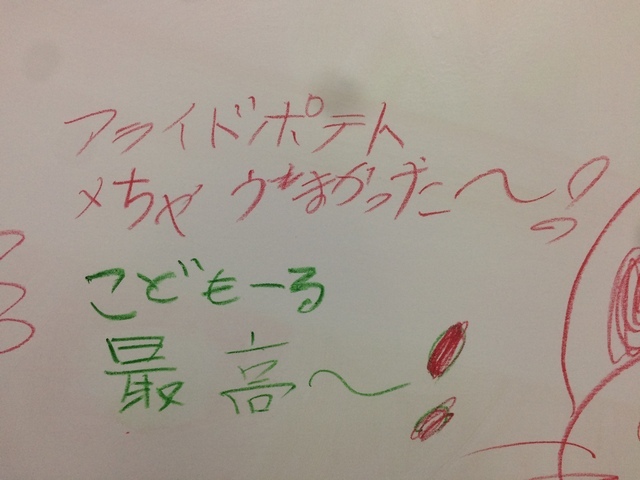 フライドポテト
メちゃうまかった〜!
こどもーる
最高〜!